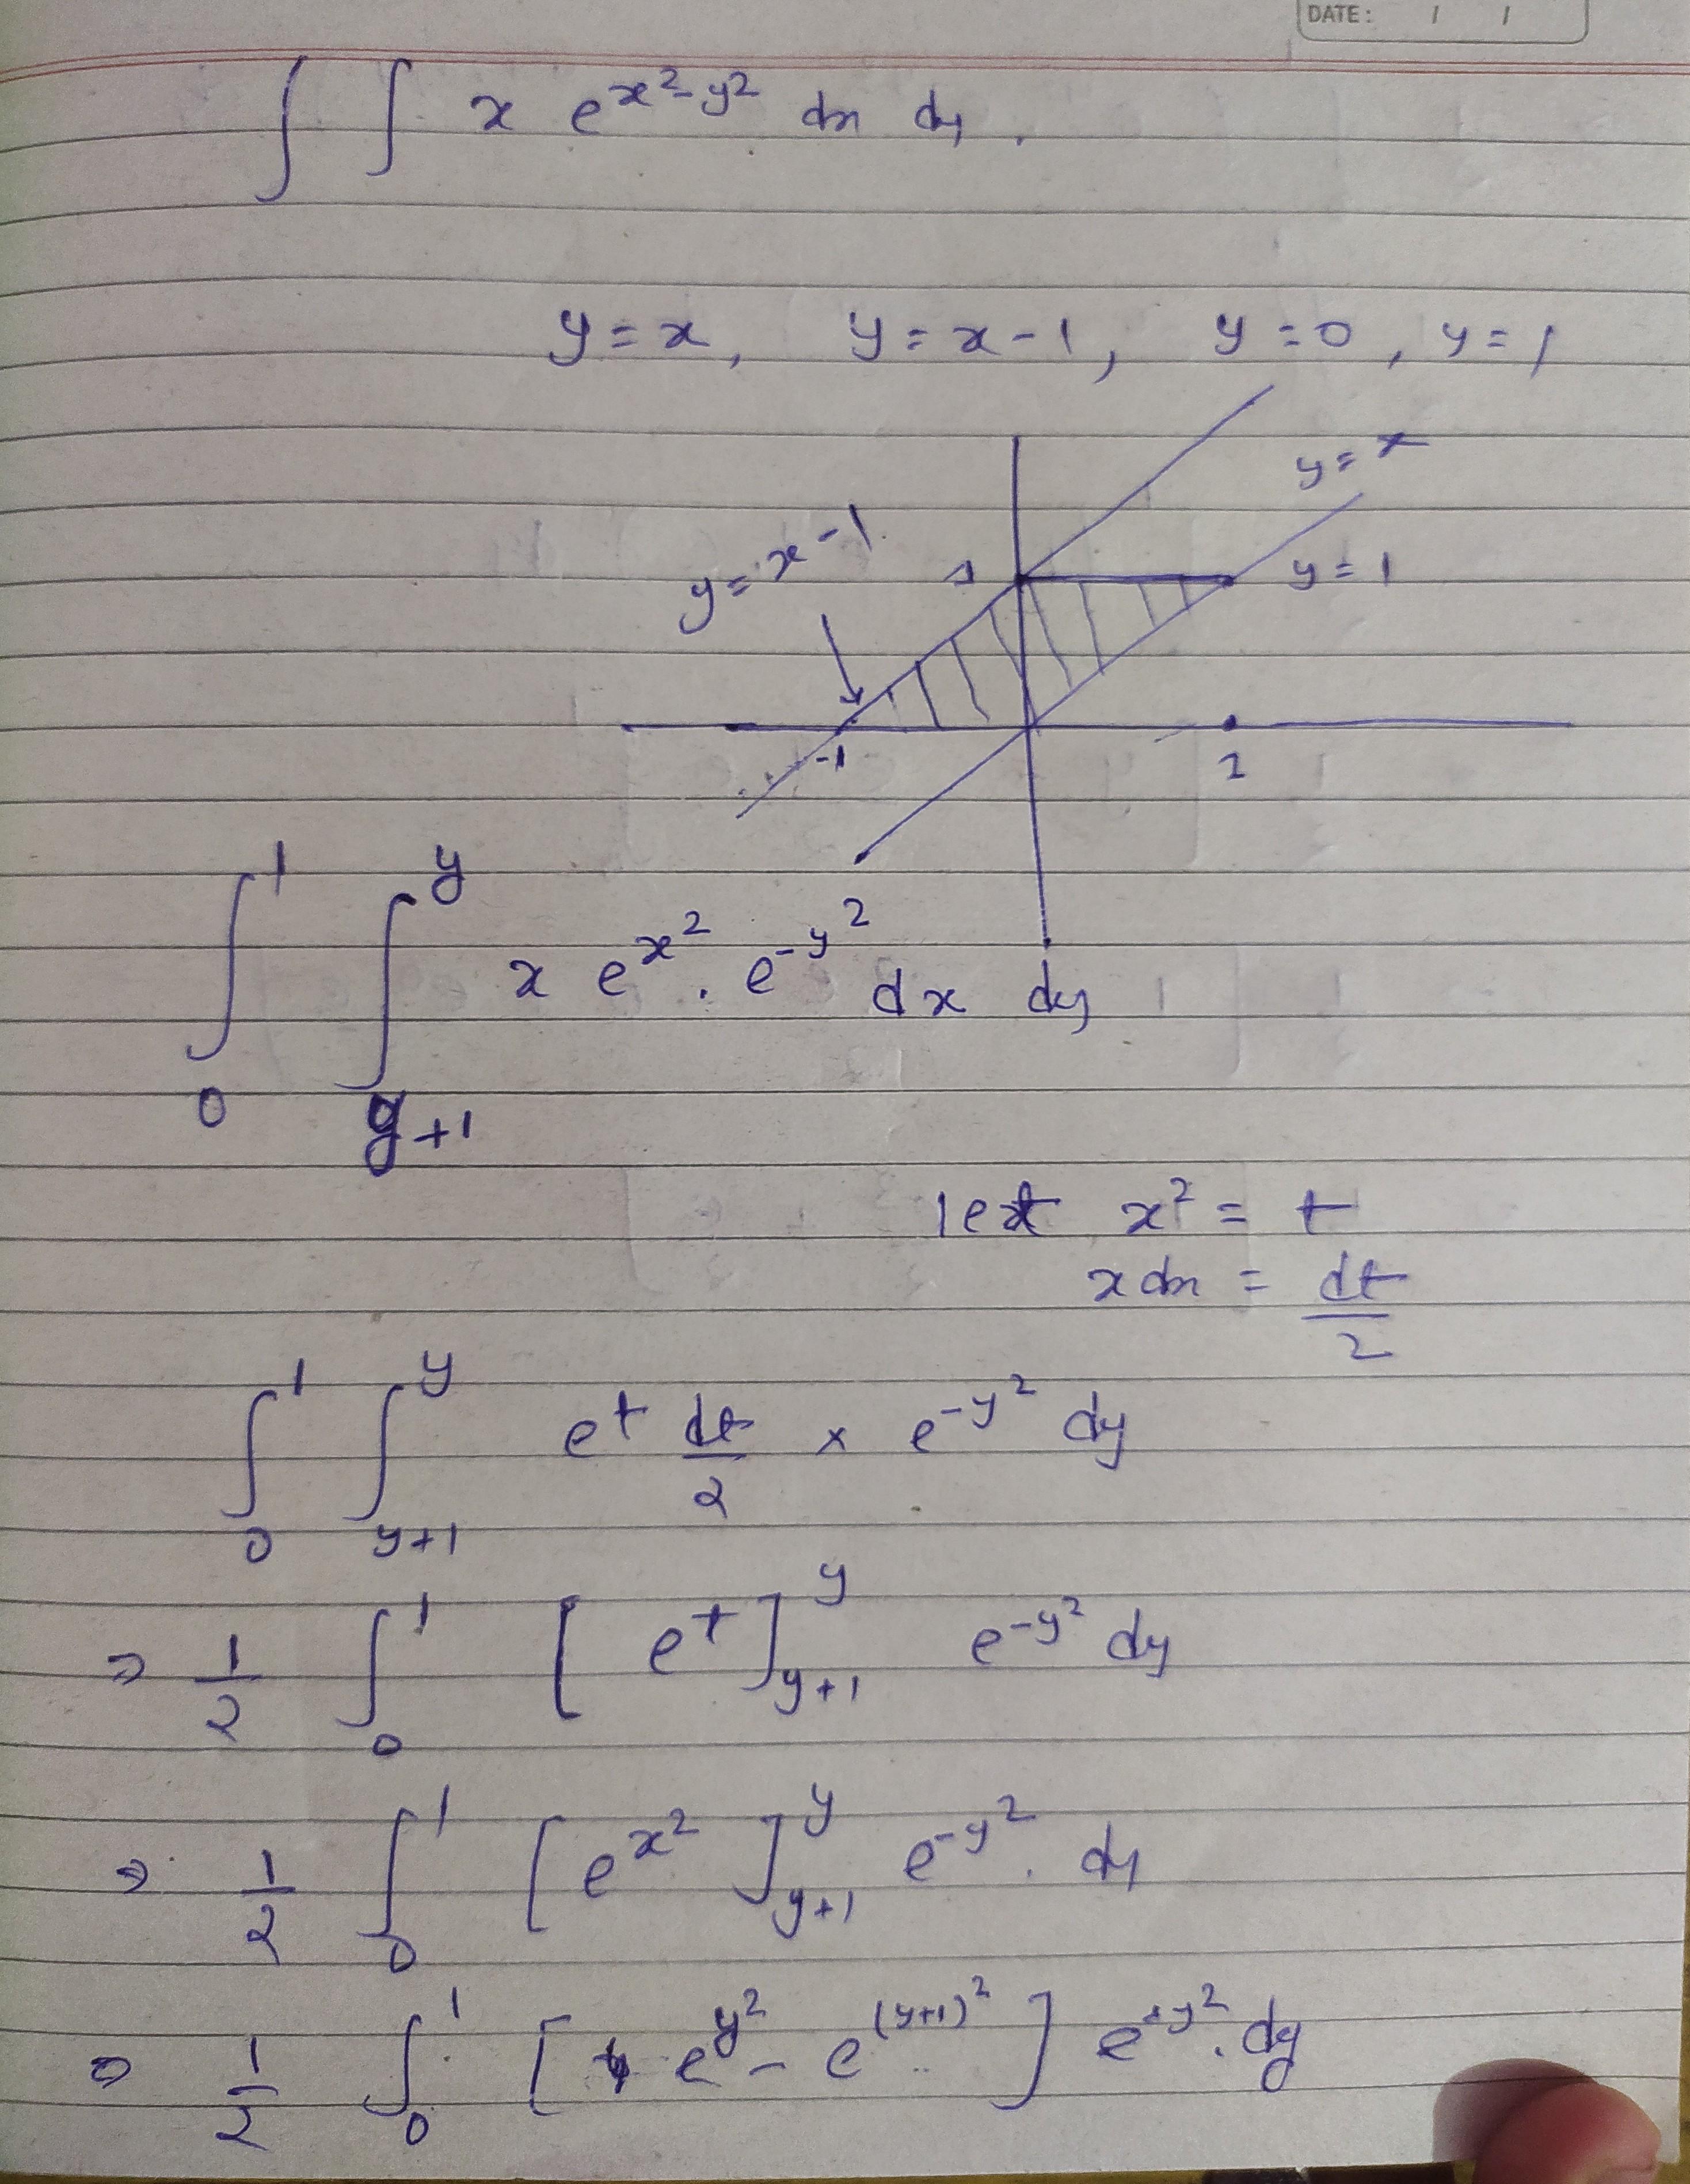 DATE: / /
∫ ∫ x e^{x²-y²} dx dy.
y = x, y = x-1, y = 0, y = 1
y = x
y = x-1
1 y = 1
-1 1
∫_0^1 ∫_{y+1}^y x e^{x²} . e^{-y²} dx dy
let x² = t
x dx = dt/2
∫_0^1 ∫_{y+1}^y e^t dt/2 × e^{-y²} dy
⇒ 1/2 ∫_0^1 [ e^t ]_{y+1}^y e^{-y²} dy
⇒ 1/2 ∫_0^1 [ e^{x²} ]_{y+1}^y e^{-y²} . dy
⇒ 1/2 ∫_0^1 [ e^{y²} - e^{(y+1)²} ] e^{-y²} . dy